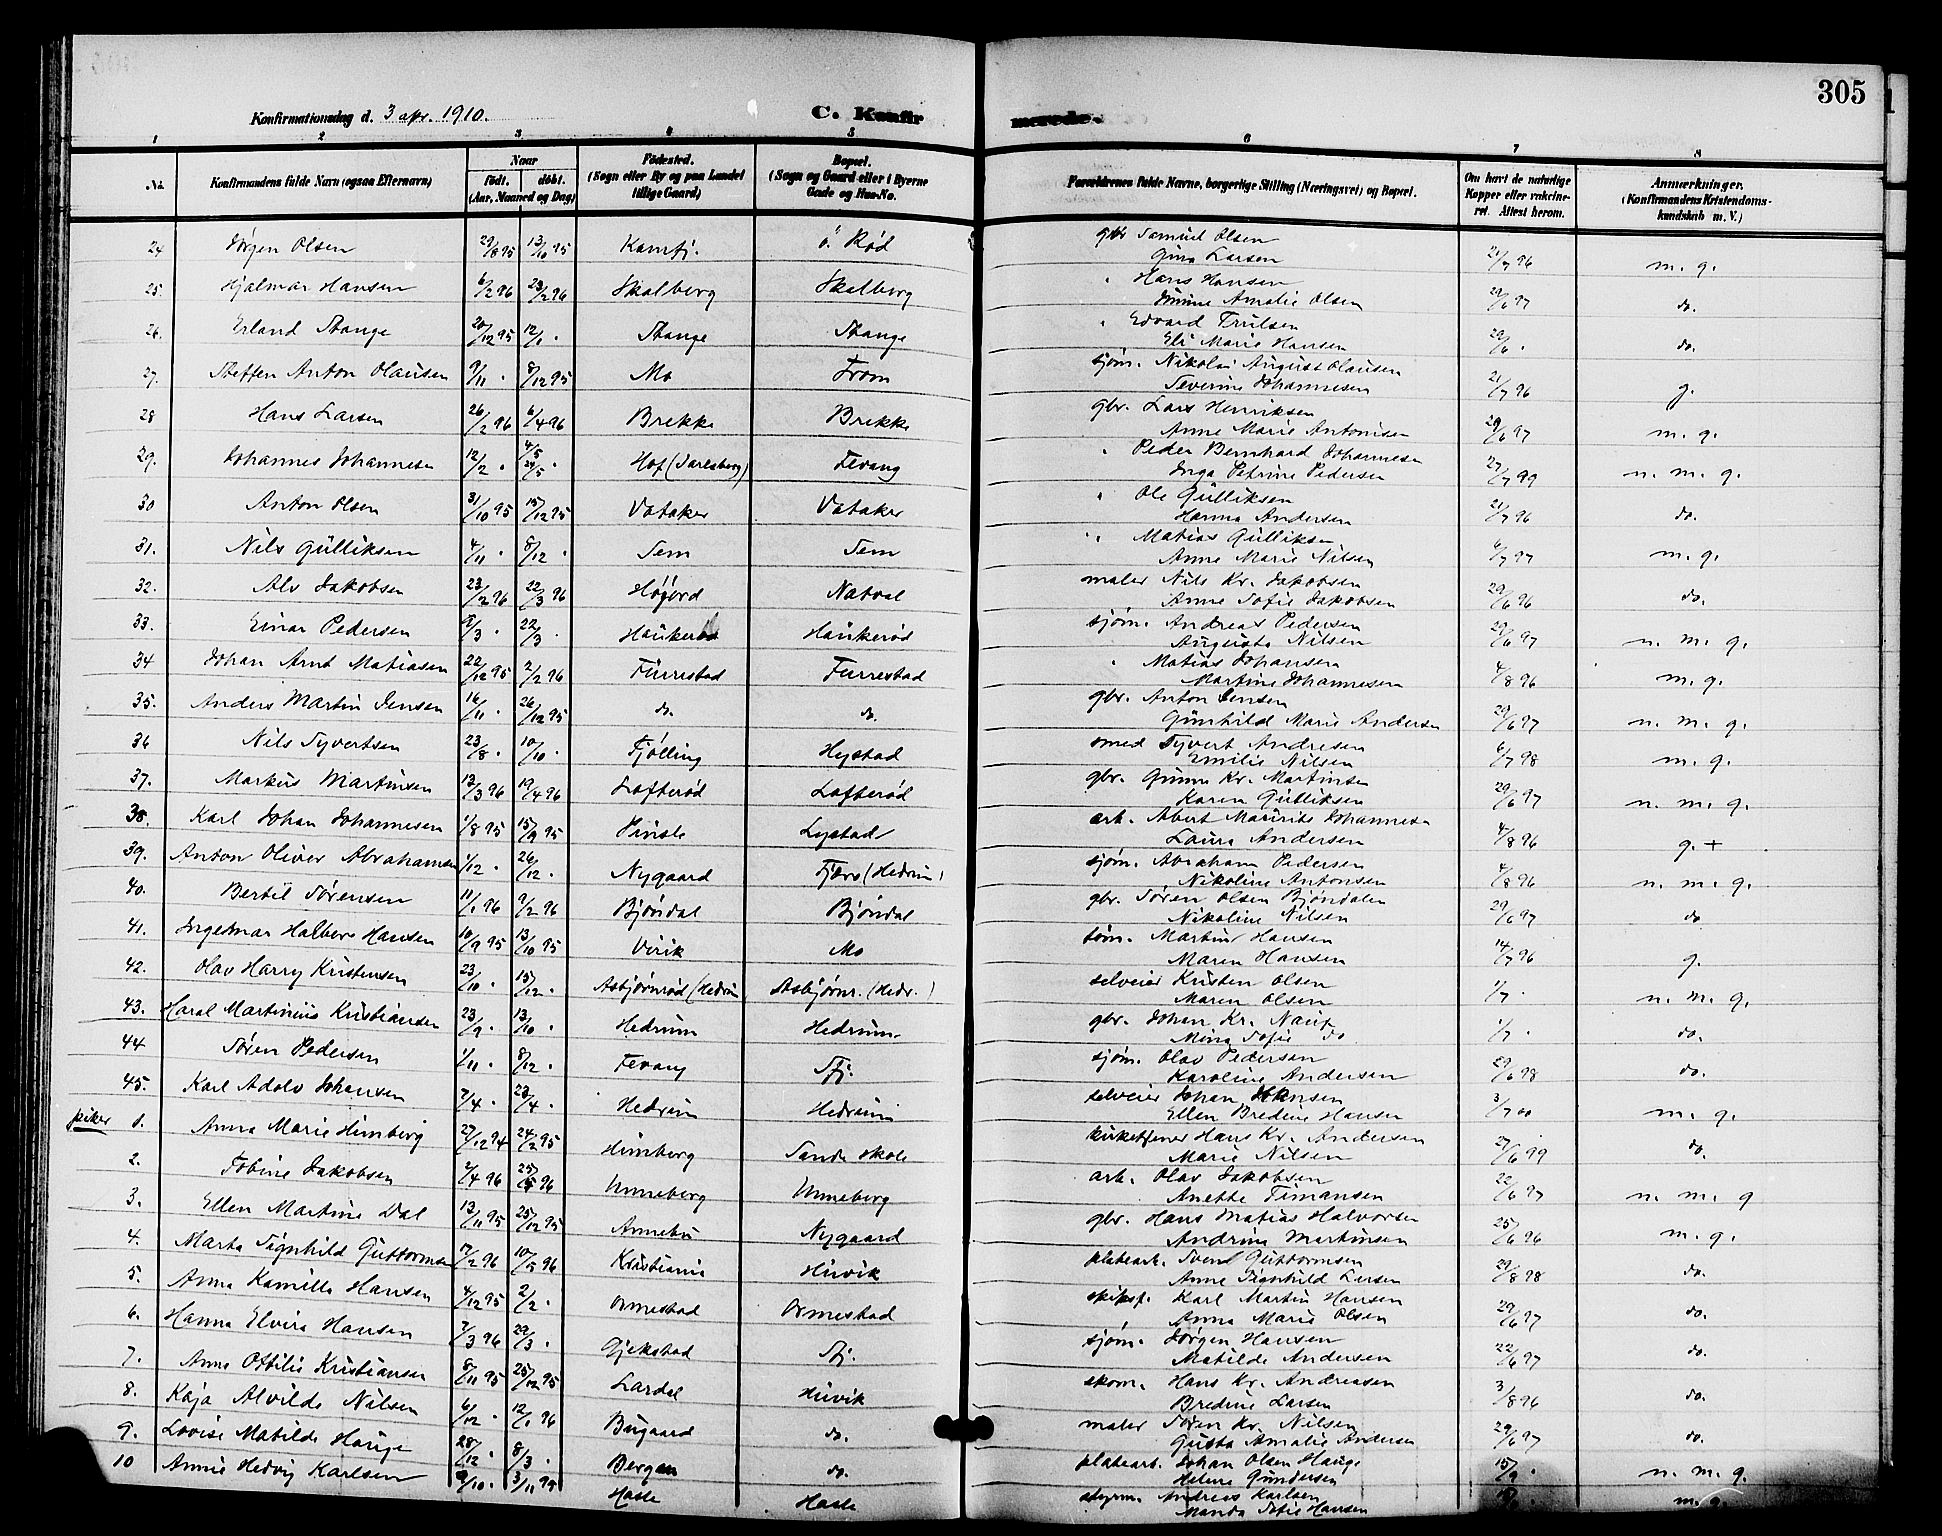 305
Konfirmationsdag d. 3 apr. 1910.
C. Konfirmerede.
1 2 3 4 5 6 7 8
No.
Konfirmandens fulde Navn (ogsaa Efternavn)
Naar
født. døbt.
(Aar, Maaned og Dag)
Fødested.
(Sogn eller By og paa Landet
tillige Gaard)
Bopæl.
(Sogn og Gaard eller i Byerne
Gade og Hus-No.
Forældrenes fulde Navne, borgerlige Stilling (Næringsvei) og Bopæl.
Om havt de naturlige
Kopper eller vakcine-
ret. Attest herom.
Anmærkninger.
(Konfirmandens Kristendoms-
kundskab m. V.)
24 Jørgen Olsen 29/8 95 13/10 95 Kamfj. ö. Rød gbr Samuel Olsen
Gina Larsen 21/7 96 m. g.
25. Hjalmar Hansen 6/2 96 23/2 96 Skalberg Skalberg " Hans Hansen
Amalie Olsen 29/6 97 do.
26. Erland Stange 20/12 95 12/1 . Stange Stange " Edvard Trulsen
Eli Marie Hansen 29/6 . do.
27. Steffen Anton Olausen 9/11 . 8/12 95 Mo From sjøm. Nikolai August Olausen
Severine Johannesen 21/7 96 g.
28 Hans Larsen 26/2 96 6/4 96 Brekke Brekke gbr. Lars Henriksen
Anne Marie Antonisen 29/6 97 m. g.
29. Johannes Johannesen 12/2 . 4/5 24/5 . Hof (Jarlsberg) Fevang " Peder Bernhard Johannesen
Inga Petrine Pedersen 27/7 99 n. m. g.
30 Anton Olsen 31/10 95 15/12 95 Vataker Vataker " Ole Gulliksen
Hanna Andersen 21/7 96 do.
31. Nils Gulliksen 4/11 . 8/12 . Sem Sem " Matias Gulliksen
Anne Marie Nilsen 6/7 97 m. g.
32. Alv Jakobsen 23/2 96 22/3 96 Høgerd Natval maler Nils Kr. Jakobsen
Anne Sofie Jakobsen 29/6 96 do.
33. Einar Pedersen 9/3 . 22/3 . Haukerød Haukerød sjøm. Andreas Pedersen
Augusta Nilsen 29/6 97 n. m. g.
34 Johan Arnt Matiasen 22/12 95 2/2 96 Furrestad Furrestad " Matias Johansen
Martine Johannesen 4/8 96 m. g.
35. Anders Martin Jensen 16/11 . 26/12 95 do. do. gbr. Anton Jensen
Gunhild Marie Andersen 29/6 97 n. m. g.
36 Nils Syvertsen 23/8 . 10/10 . Fjølling Hystad smed Syvert Andresen
Emilie Nilsen 6/7 98 m. g.
37. Markus Martinsen 13/3 96 19/4 96 Lofterød Lofterød gbr. Gunne Kr. Martinsen
Karen Gulliksen 29/6 97 n. m. g.
38. Karl Johan Johannesen 1/8 95 15/9 95 Pinsle Lystad arb. Abert Maurits Johannesen
Laura Andersen 4/8 96 g. +
39. Anton Oliver Abrahamsen 1/12 . 26/12 . Nygaard Fjære (Hedrum) sjøm. Abraham Pedersen
Nikoline Antonsen 4/8 96 n. m. g.
40. Bertil Sørensen 11/1 96 9/2 96 Bjøndal Bjøndal gbr. Søren Olsen Bjøndalen
Nikoline Nilsen 29/6 97 do
41. Ingemar Halberg Hansen 10/9 95 13/10 95 Virik Mo tøm. Martin Hansen
Maren Hansen 14/7 96 g.
42. Olav Harry Kristensen 23/10 . 15/12 . Asbjørnrød (Hedrum Asbjørnr. (Hedr.) selveier Kristen Olsen
Maren Olsen 1/7 . n. m. g.
43. Haral Martinius Kristiansen 23/9 . 13/10 . Hedrum Hedrum gbr. Johan Kr. Nauf
Mina Sofie do 1/7 . do.
44 Søren Pedersen 1/11 . 8/12 . Fevang Sfj. sjøm. Olav Pedersen
Karoline Andersen 29/6 98 do.
45. Karl Adolv Johansen 7/4 . 23/4 . Hedrum Hedrum selveier Johan Johansen
Ellen Bredine Hansen 3/7 00 m. g.
piker 1. Anna Marie Himberg 27/12 94 24/2 95 Himberg Sande skole kirketjener Hans Kr. Andersen
Marie Nilsen 27/6 99 do.
2. Tobine Jakobsen 4/4 96 25/5 96 Unneberg Unneberg arb. Olav Jakobsen
Anette Timansen 22/6 97 n. m. g
3. Ellen Martine Dal 13/11 95 25/12 95 Annebu Nygaard gbr. Hans Matias Halvorsen
Andrine Martinsen 25/6 96 m. g.
4. Marta Signhild Guttormsen 17/2 96 10/5 96 Kristiania Huvik platearb. Svend Guttormsen
Anne Signhild Larsen 29/8 98 do.
5. Anna Kamilla Hansen 4/12 95 2/2 . Ormestad Ormestad skipsf. Karl Martin Hansen
Anna Marie Olsen 29/6 97 do.
6. Hanna Elvira Hansen 7/3 96 22/3 . Gjekstad Sfj. sjøm. Jørgen Hansen
Matilde Andersen 22/6 97 do.
7. Anna Ottilie Kristiansen 8/11 95 25/12 95 Lardal Huvik skom. Hans Kr. Andreasen
Bredine Larsen 3/8 96 do.
8. Kaja Alvilde Nilsen 6/12 . 12/1 96 Bugaard do. maler Søren Kr. Nilsen
Gusta Amalie Andersen 29/6 97 do.
9. Lovise Matilde Hauge 28/12 . 8/3 . Bergen do. platearb. Johan Olsen Hauge
Helene Gundersen 15/9 . n. m. g.
10 Annie Hedvig Karlsen 9/10 . 3/11 95 Hasle Hasle styrm. Andreas Karlsen
Manda Sofie Hansen m. g.